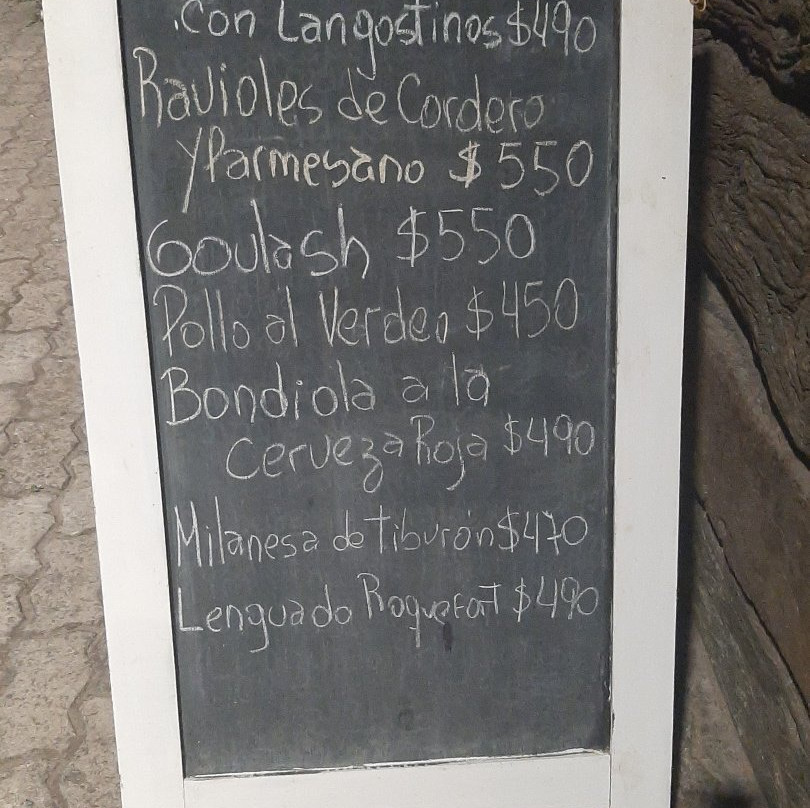 Con Langostinos $490
Ravioles de Cordero
y Parmesano $550
Goulash $550
Pollo al Verdeo $450
Bondiola a la
Cerveza Roja $490
Milanesa de Tiburón $470
Lenguado Roquefort $490